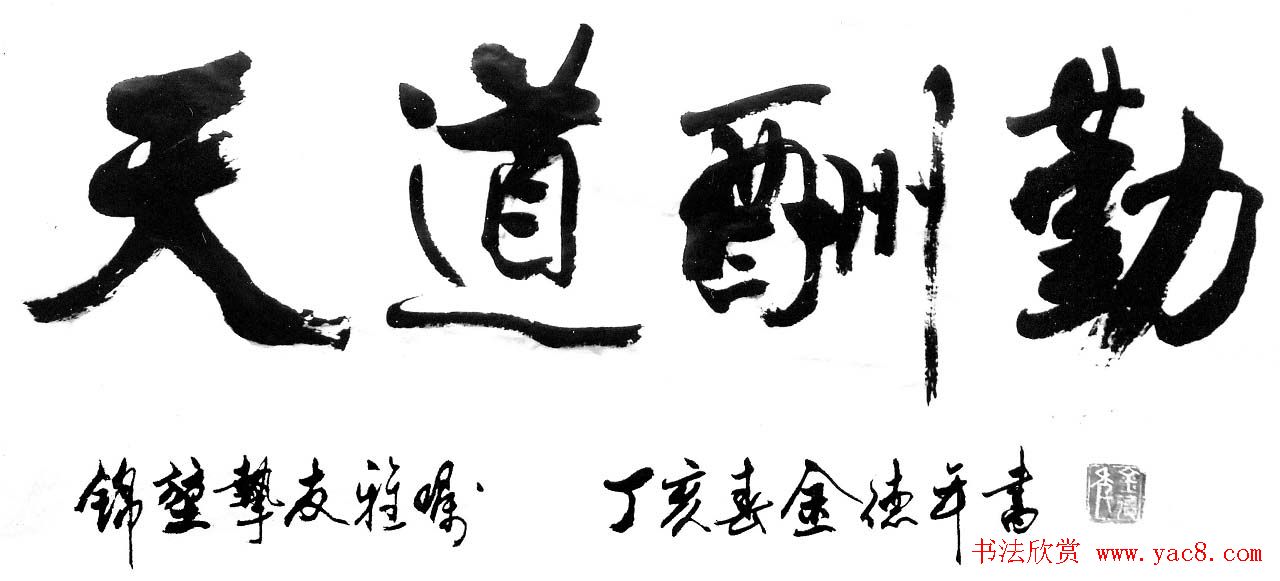 天道酬勤
錦摯友雅嘱 丁亥春金德年書
书法欣赏 www.yac8.com